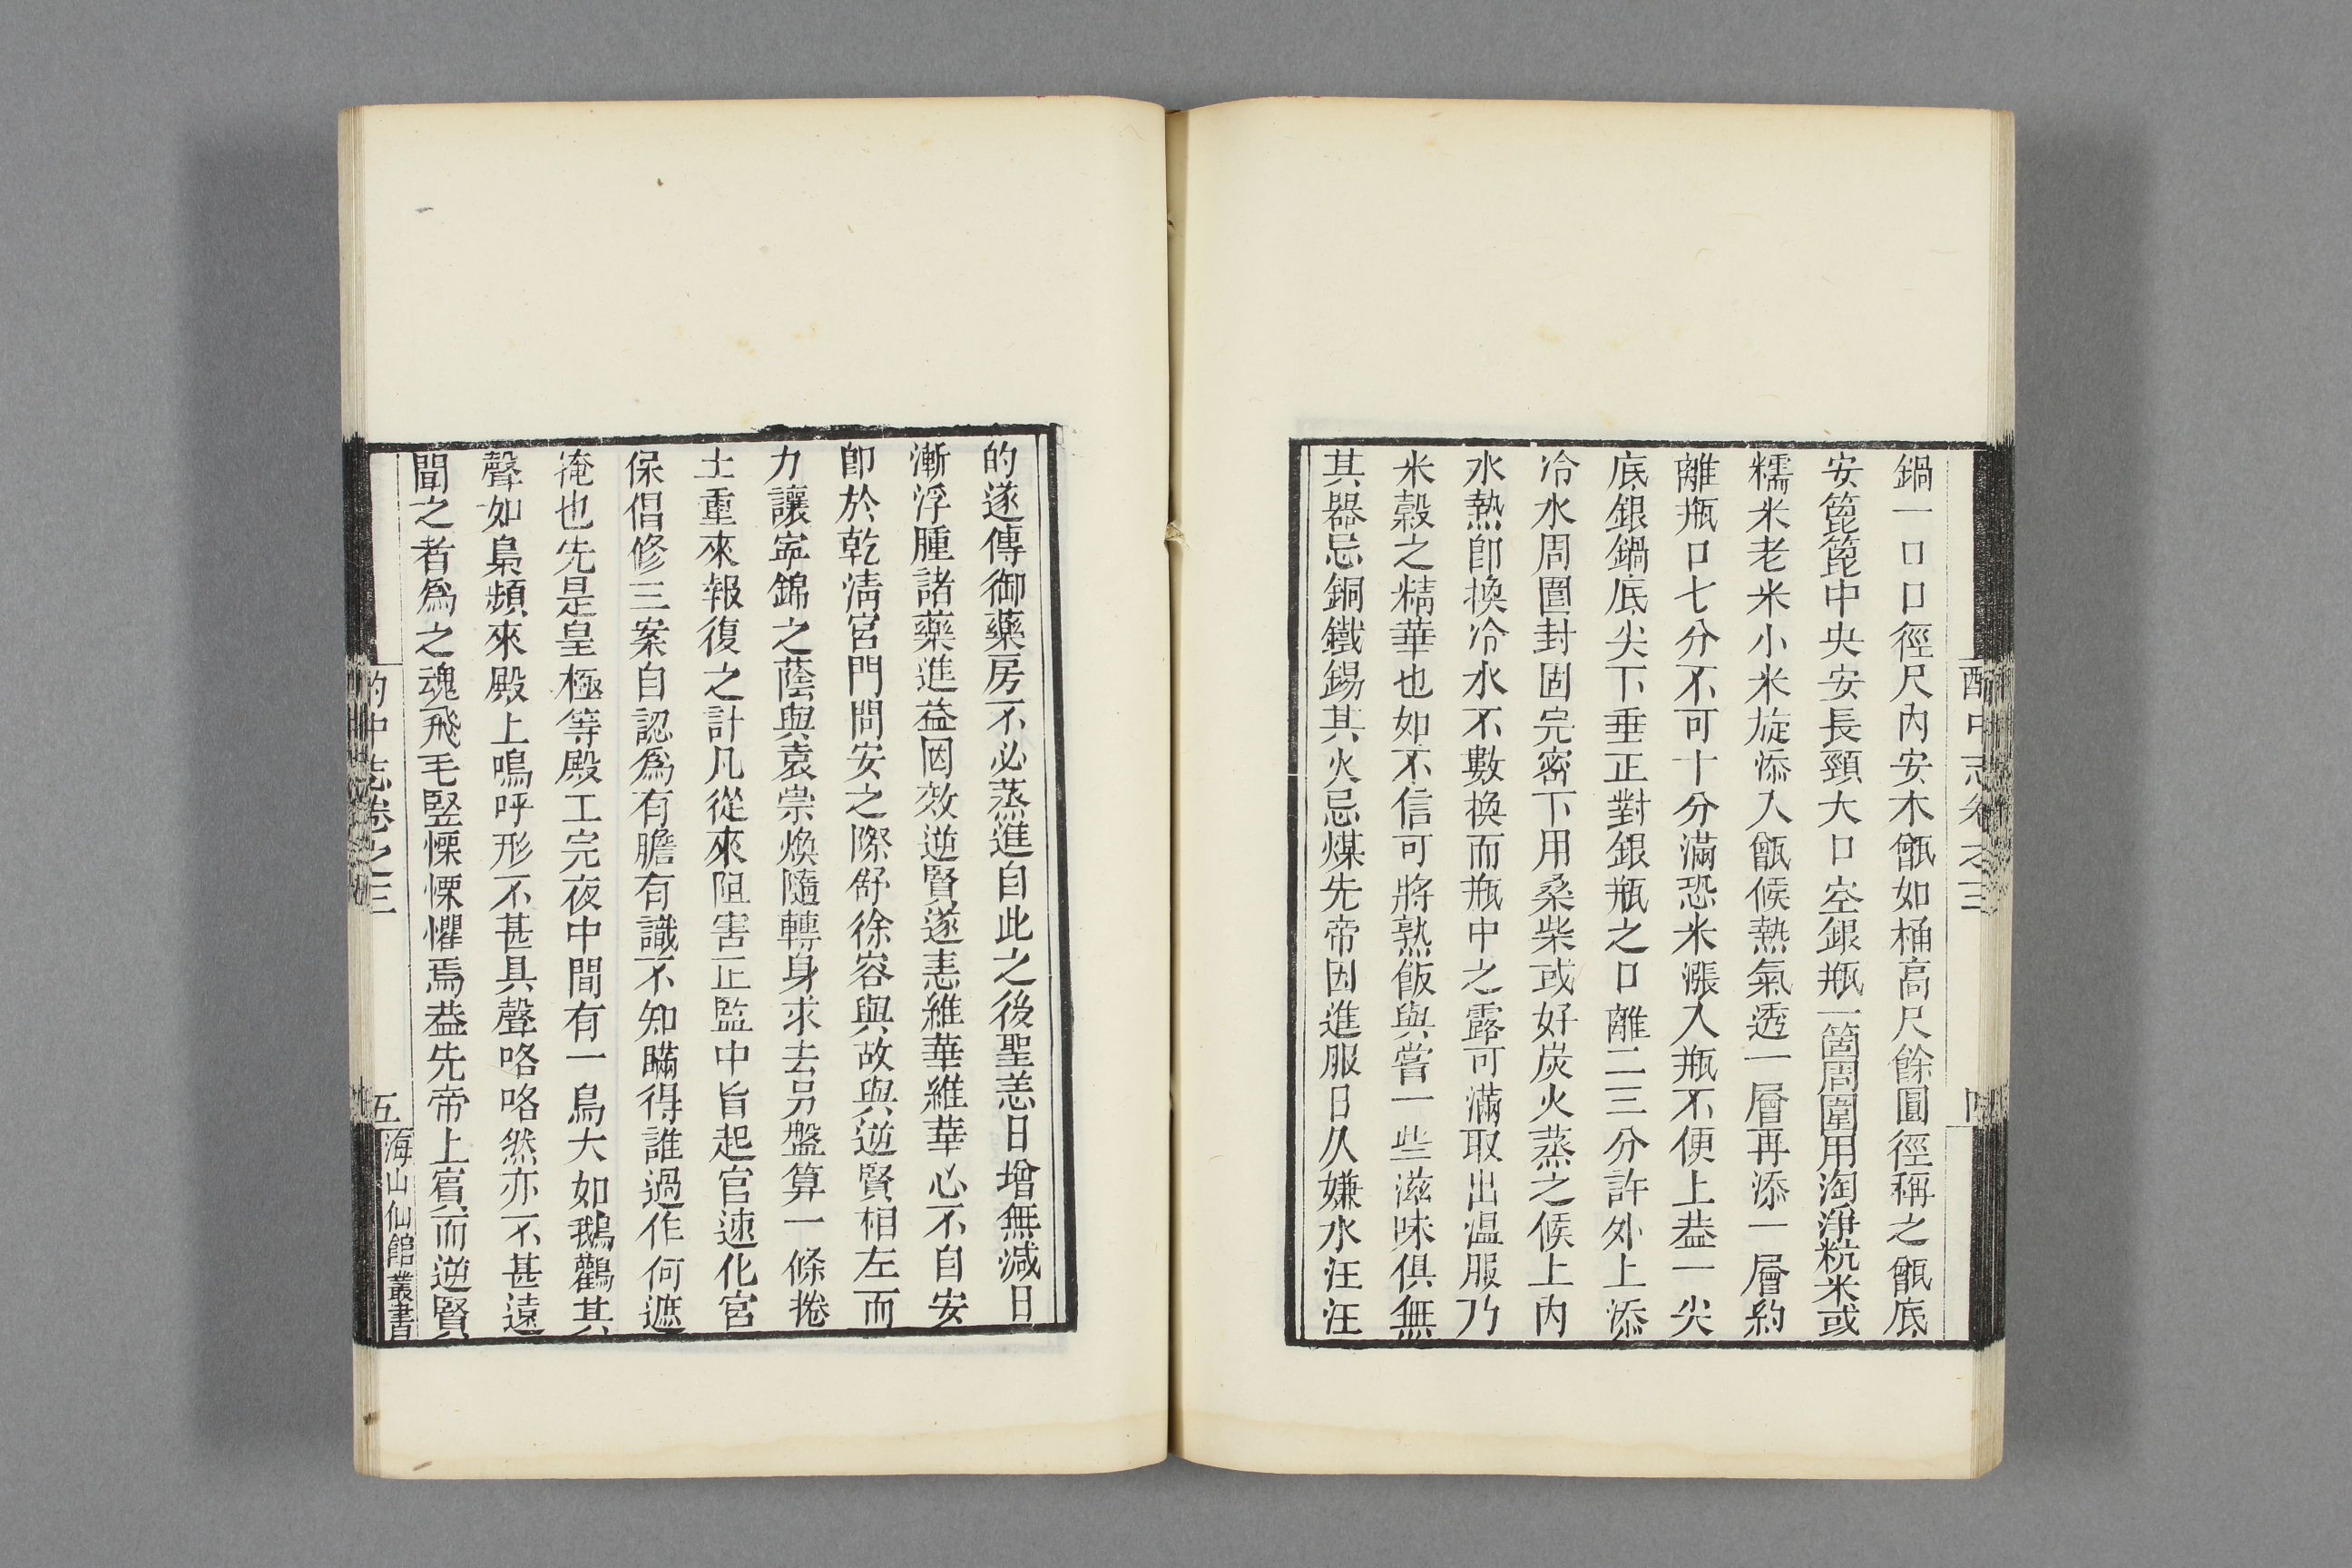 酌中志卷之三
鍋一口口徑尺內安木甑如桶高尺餘圓徑稱之甑底
安箆箆中央安長頸大口空銀瓶一箇周圍用淘淨粇米或
糯米老米小米旋添入甑候熱氣透一層再添一層約
離瓶口七分不可十分滿恐米漲入瓶不便上葢一尖
底銀鍋底尖下垂正對銀瓶之口離二三分許外上添
冷水周圍封固完密下用桑柴或好炭火蒸之候上內
水熱卽換冷水不數換而瓶中之露可滿取出温服乃
米穀之精華也如不信可將熟飯與嘗一些滋味俱無
其器忌銅鐵錫其火忌煤先帝因進服日久嫌水汪汪
的遂傳御藥房不必蒸進自此之後聖恙日增無減日
漸浮腫諸藥進益罔效逆賢遂恚維華維華必不自安
卽於乾淸宮門問安之際舒徐容與故與逆賢相左而
力讓寧錦之蔭與袁崇煥隨轉身求去另盤算一條捲
土重來報復之計凡從來阻害正監中旨起官速化宮
保倡修三案自認爲有膽有識不知瞞得誰過作何遮
掩也先是皇極等殿工完夜中間有一鳥大如鵝鸛其
聲如梟頻來殿上鳴呼形不甚具聲咯咯然亦不甚遠
聞之者爲之魂飛毛竪慄慄懼焉葢先帝上賓而逆賢
酌中志卷之三
五
海山仙館叢書